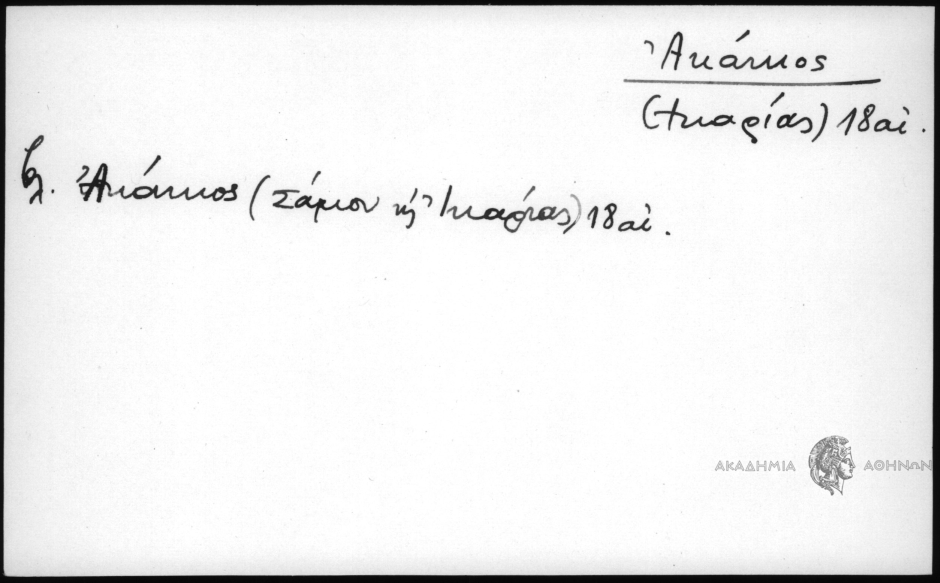 Ἀκάκιος
(Ἰκαρίας) 18 αἰ.
βλ. Ἀκάκιος (Σάμου κ Ἰκαρίας) 18 αἰ.
ΑΚΑΔΗΜΙΑ ΑΘΗΝΩΝ